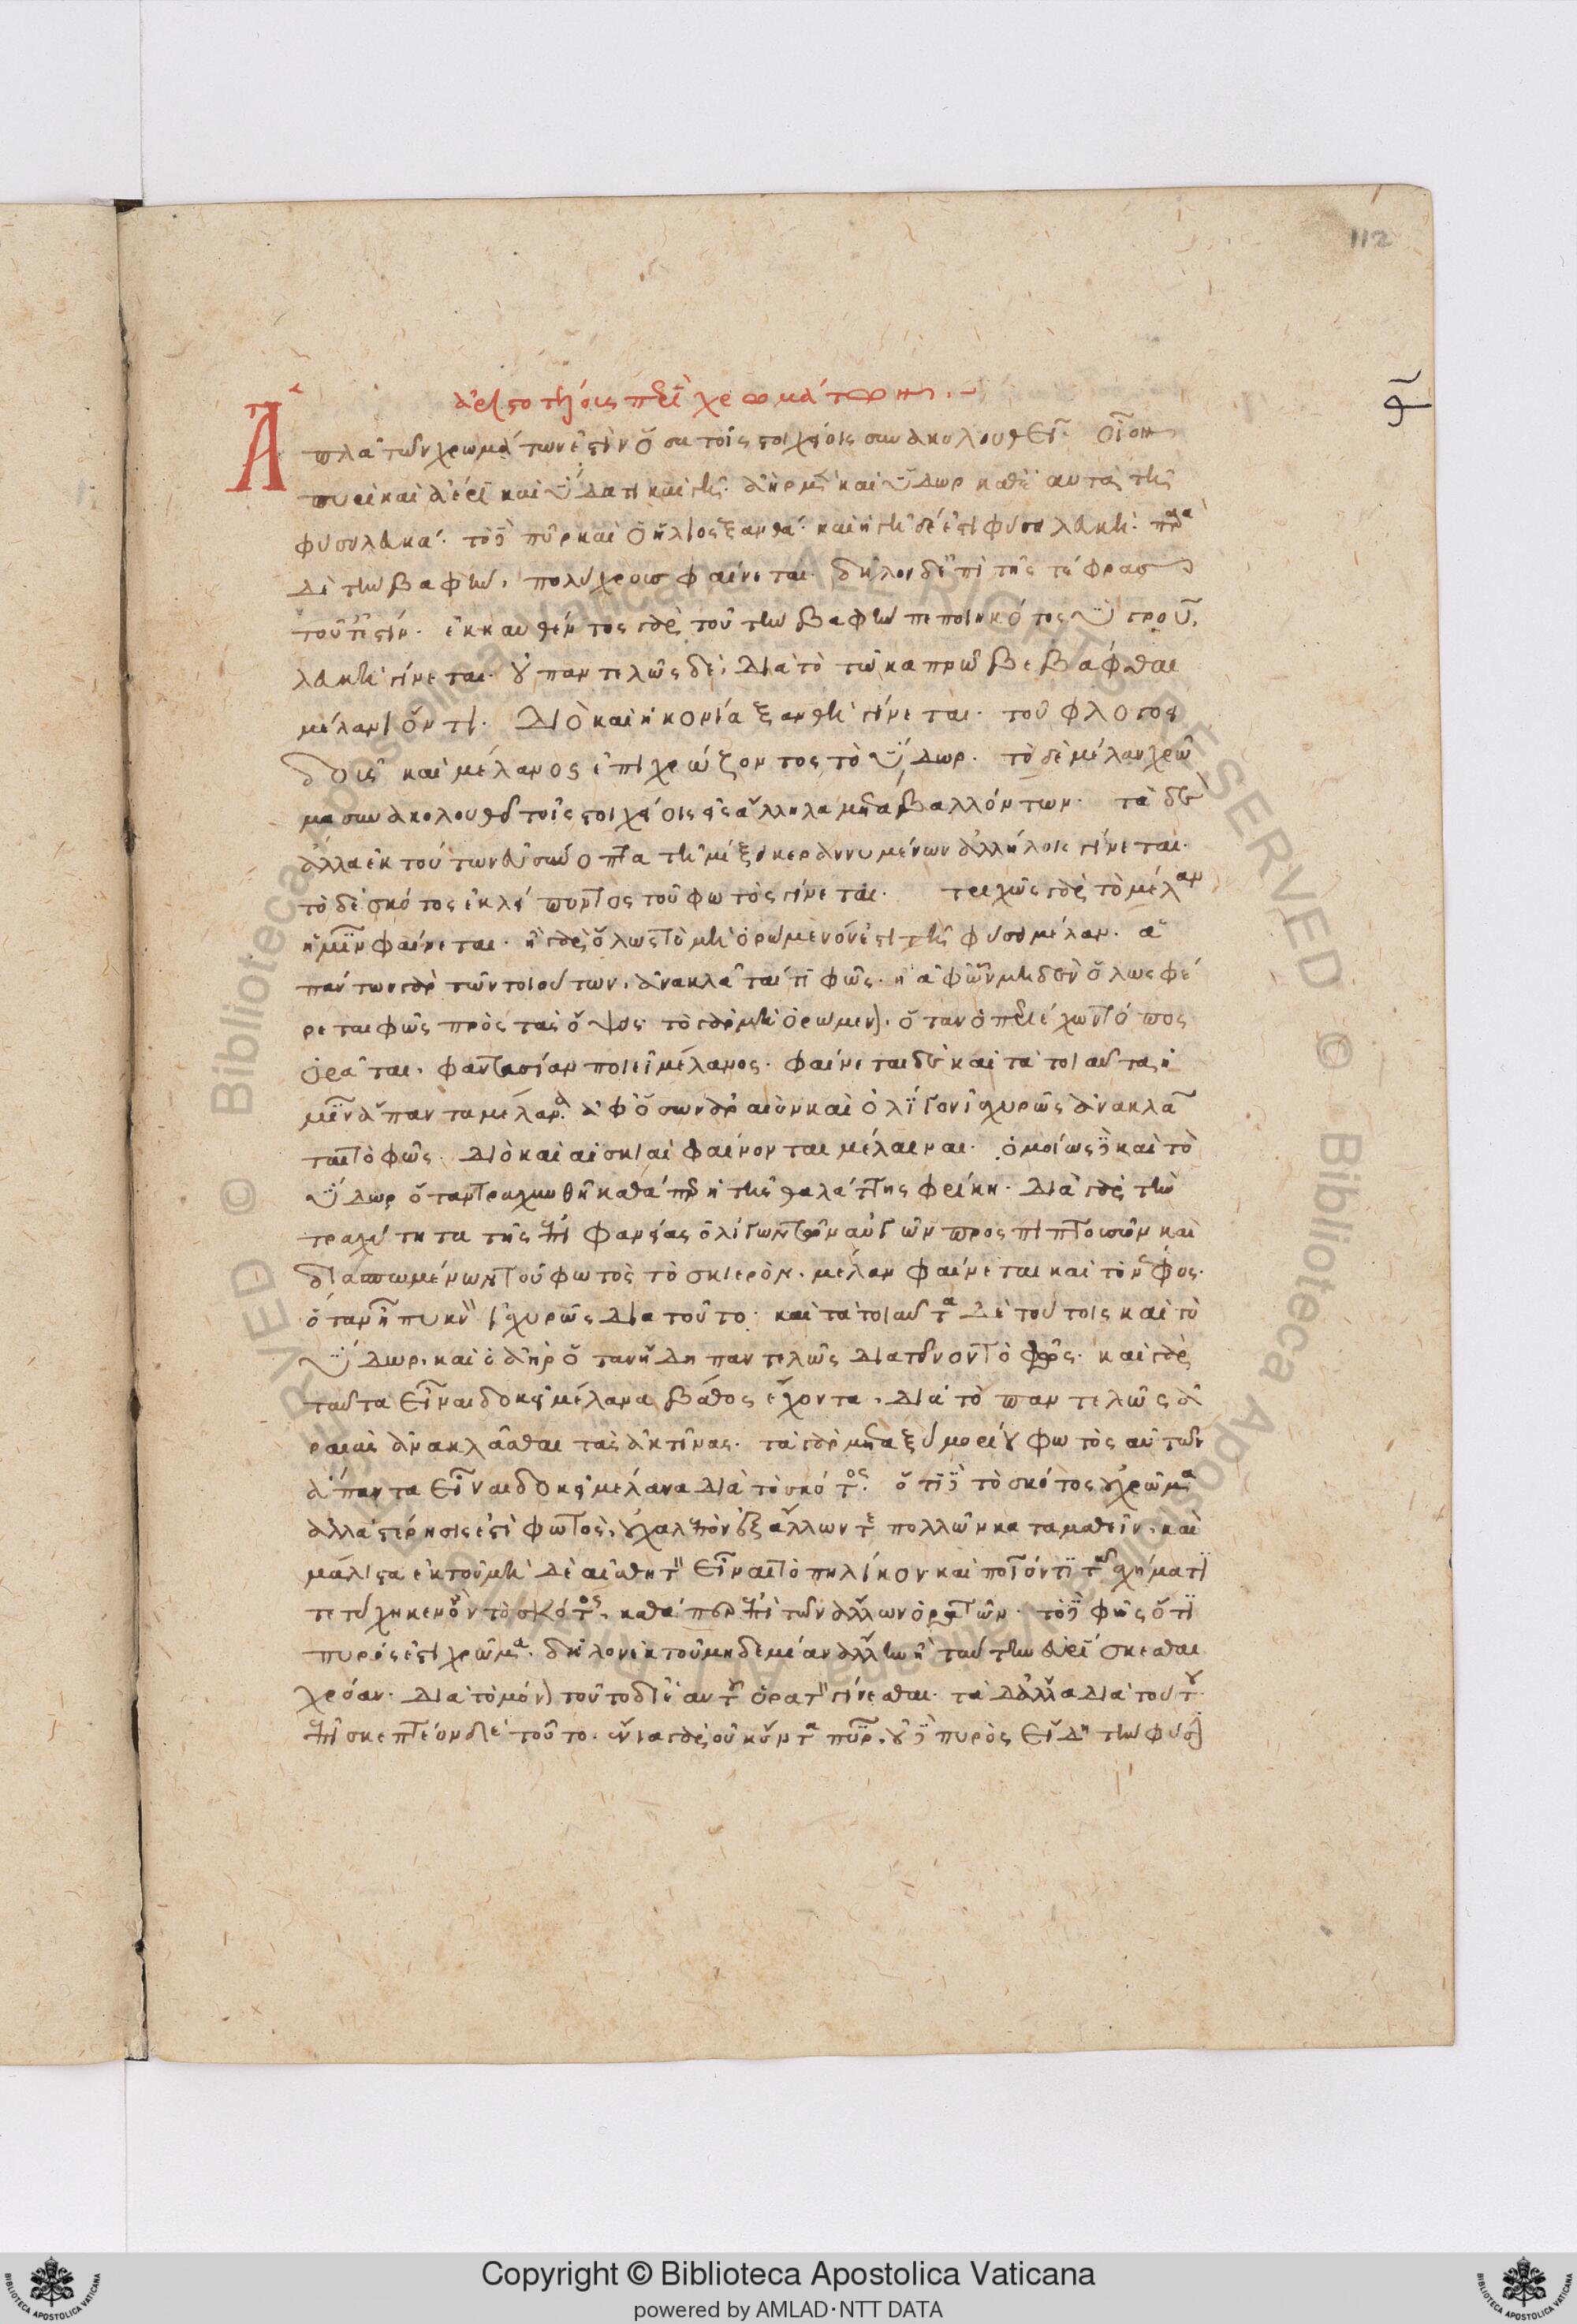 112
ἀριστοτέλους περὶ χρωμάτων.
Ἁπλᾶ τῶν χρωμάτων ἐστὶν ὅσα τοῖς στοιχείοις συνακολουθεῖ· οἷον
πυρὶ καὶ ἀέρι καὶ ὕδατι καὶ γῇ· ἀὴρ μὲν καὶ ὕδωρ καθ' αυτὰ τῇ
φύσει λευκά· τὸ δὲ πῦρ καὶ ὁ ἥλιος ξανθά· καὶ ἡ γῆ δέ ἐστι φύσει λευκή· παρὰ
δὲ τὴν βαφὴν, πολύχρους φαίνεται· δῆλον δ' ἐπὶ τῆς τέφρας
τοῦτ' ἐστίν· ἐκκαυθέντος γὰρ τοῦ τὴν βαφὴν πεποιηκότος ὑγροῦ,
λευκὴ γίνεται· οὐ παντελῶς δὲ, διὰ τὸ τῷ καπνῷ βεβάφθαι
μέλανι ὄντι· διὸ καὶ ἡ κονία ξανθὴ γίνεται· τοῦ φλογο
δοῦς καὶ μέλανος ἐπιχρώζοντος τὸ ὕδωρ· τὸ δὲ μέλαν χρῶ
μα συνακολουθεῖ τοῖς στοιχείοις εἰς ἄλληλα μεταβαλλόντων· τὰ δὲ
ἄλλα ἐκ τούτων εὐσύνοπτα τῇ μίξει κεραννυμένων ἀλλήλοις γίνεται·
τὸ δὲ σκότος ἐκλείποντος τοῦ φωτὸς γίνεται· τριχῶς γὰρ τὸ μέλαν
ἡμῖν φαίνεται· ἢ γὰρ ὅλως τὸ μὴ ὁρώμενόν ἐστι τῇ φύσει μέλαν· ἁ
πάντων γὰρ τῶν τοιούτων, ἀνακλᾶταί τι φῶς· ἢ ἀφ' ὧν μηδὲν ὅλως φέ
ρεται φῶς πρὸς τὰς ὄψεις· τὸ γὰρ μὴ ὁρώμενον, ὅταν ὁ περιέχων τόπος
ὁρᾶται, φαντασίαν ποιεῖ μέλανος· φαίνεται δὲ καὶ τὰ τοιαῦτα ἡ
μῖν ἅπαντα μέλανα ἀφ' ὅσων ἀραιὸν καὶ ὀλίγον ἰσχυρῶς ἀνακλᾶ
ται τὸ φῶς· διὸ καὶ αἱ σκιαὶ φαίνονται μέλαιναι· ὁμοίως δὲ καὶ τὸ
ὕδωρ ὅταν τραχυνθῇ καθάπερ ἡ τῆς θαλάττης φρίκη· διὰ γὰρ τὴν
τραχύτητα τῆς ἐπιφανείας ὀλίγων τῶν αὐγῶν προσπιπτουσῶν καὶ
διασπωμένων τοῦ φωτὸς τὸ σκιερὸν, μέλαν φαίνεται καὶ τὸ νέφος·
ὅταν ᾖ πυκνὸν ἰσχυρῶς διὰ τοῦτο· κατὰ τὰ αὐτὰ δὲ τούτοις καὶ τὸ
ὕδωρ, καὶ ὁ ἀὴρ ὅταν ἤδη παντελῶς διατείνοντο φῶς· καὶ γὰρ
ταῦτα εἶναι δοκεῖ μέλανα βάθος ἔχοντα, διὰ τὸ παντελῶς ἀ
ραιὰς ἀνακλᾶσθαι τὰς ἀκτῖνας· τὰ γὰρ μεταξὺ μόρια φωτὸς αὐτῶν
ἅπαντα εἶναι δοκεῖ μέλανα διὰ τὸ σκότος· ὅτι δὲ τὸ σκότος οὐ χρῶμα
ἀλλὰ στέρησίς ἐστι φωτὸς, οὐ χαλεπὸν ἐξ ἄλλων τε πολλῶν καταμαθεῖν, καὶ
μάλιστα ἐκ τοῦ μὴ δὲ αἰσθητὸν εἶναι τὸ πηλίκον καὶ ποῖόν τι τῷ σχήματι
τετύχηκεν ὂν τὸ σκότος, καθάπερ ἐπὶ τῶν ἄλλων ὁρατῶν· τὸ δὲ φῶς ὅτι
πυρός ἐστι χρῶμα, δῆλον ἐκ τοῦ μηδεμίαν ἄλλην ἢ ταύτην εὑρίσκεσθαι
χρόαν· διὰ τὸ μόνον τοῦτο δι' ἑαυτοῦ ὁρατὸν γίνεσθαι· τὰ δ' ἄλλα διὰ τούτου·
ἐπισκεπτέον δὲ τοῦτο· ἔνια γὰρ οὐκ ὄντα πῦρ, οὐδὲ πυρὸς εἴδη τὴν φύσιν